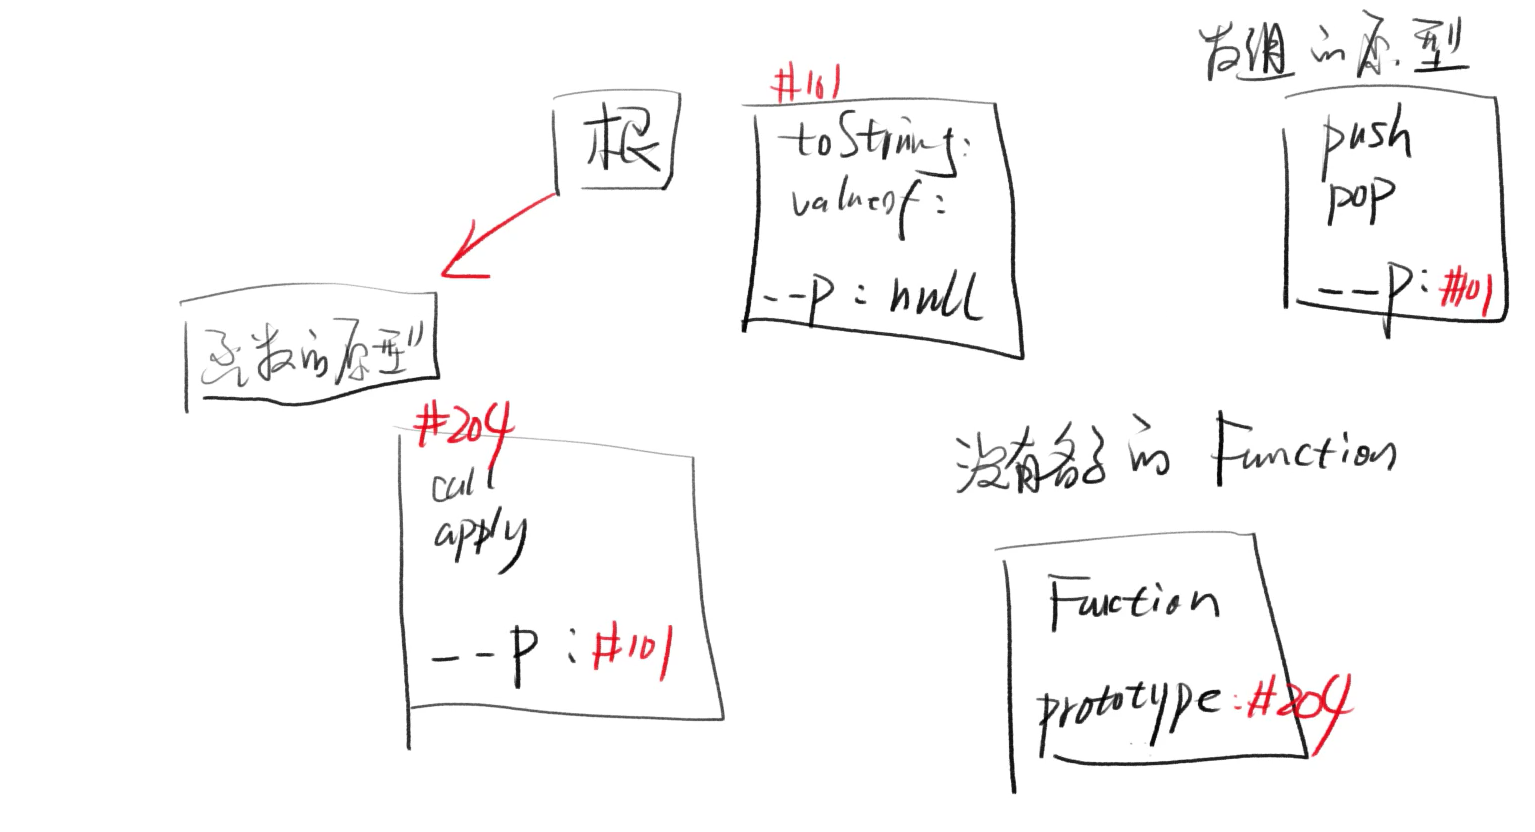 根
#101
toString:
valueof:
--p : null
数组的原型
push
pop
--p: #101
函数的原型
#204
call
apply
--p : #101
没有名字的 Function
Function
prototype: #204